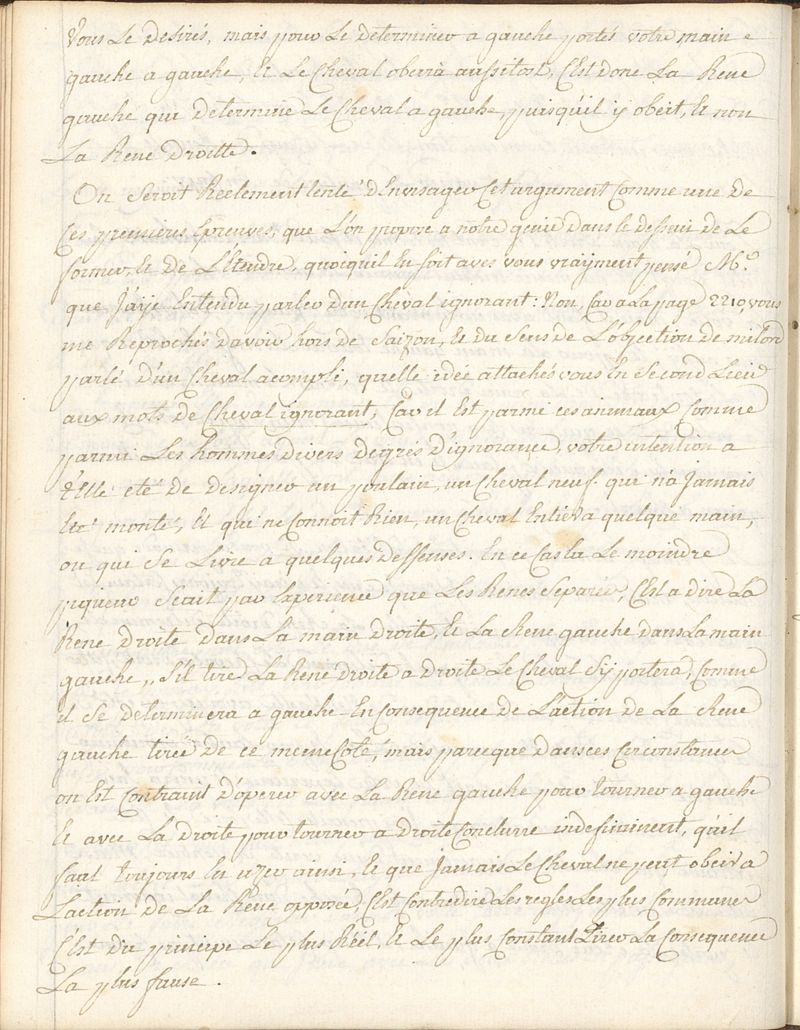 Vous Le desirés, mais pour Le determiner a gauche portés votre main
gauche a gauche, Et Le Cheval obeira aussitost, C'Est donc La Rene
gauche qui determine Le Cheval a gauche, puisqu'il y obeit, Et non
La Rene Droitte.
On Seroit Réelement tenté d'Envisager Cet argument Comme une de
Ces premieres Epreuves, que L'on propose a notre genie dans le dessein de Le
former, Et de L'Etendre, quoiquil En soit avés vous vrayment pensé Mr.
que J'aÿe Entendu parler d'un Cheval ignorant: Non, Car a La page 2210, vous
me Reprochés d'avoir hors de Saizon, Et du Sens de L'objection de milord
parlé d'un Cheval acompli, quelle idée attachés vous En Second Lieu
aux mots de Cheval ignorant, Car il Est parmi ces animaux Comme
parmi Les hommes divers degrés d'ignorance, votre intention a
t'Elle eté de designer un poulain, un Cheval neuf qui n'a Jamais
Eté monté, Et qui ne Connoit Rien, un Cheval Entier a quelque main,
ou qui Se Livre a quelques deffenses. En ce Cas la Le moindre
piqueur Scait par Experience que Les Renes Separées, C'Est a dire La
Rene Droite dans La main droite, Et La Rene gauche dans La main
gauche, S'il tire La Rene droite a droite Le Cheval S'y portera, Comme
il Se determinera a gauche En Consequence de L'action de La Rene
gauche tirée de ce meme Coté, mais parceque dans ces Circonstances
on Est Contraint d'operer avec La Rene gauche pour tourner a gauche
Et avec La droite pour tourner a droite Conclurre indefiniment, qu'il
faut toujours En uzer ainsi, Et que Jamais Le Cheval ne peut obeir a
L'action de La Rene opposée, C'Est Contredire Les regles Les plus Communes
C'Est du principe Le plus Réel, Et Le plus Constant Tirer La Consequence
La plus fause.